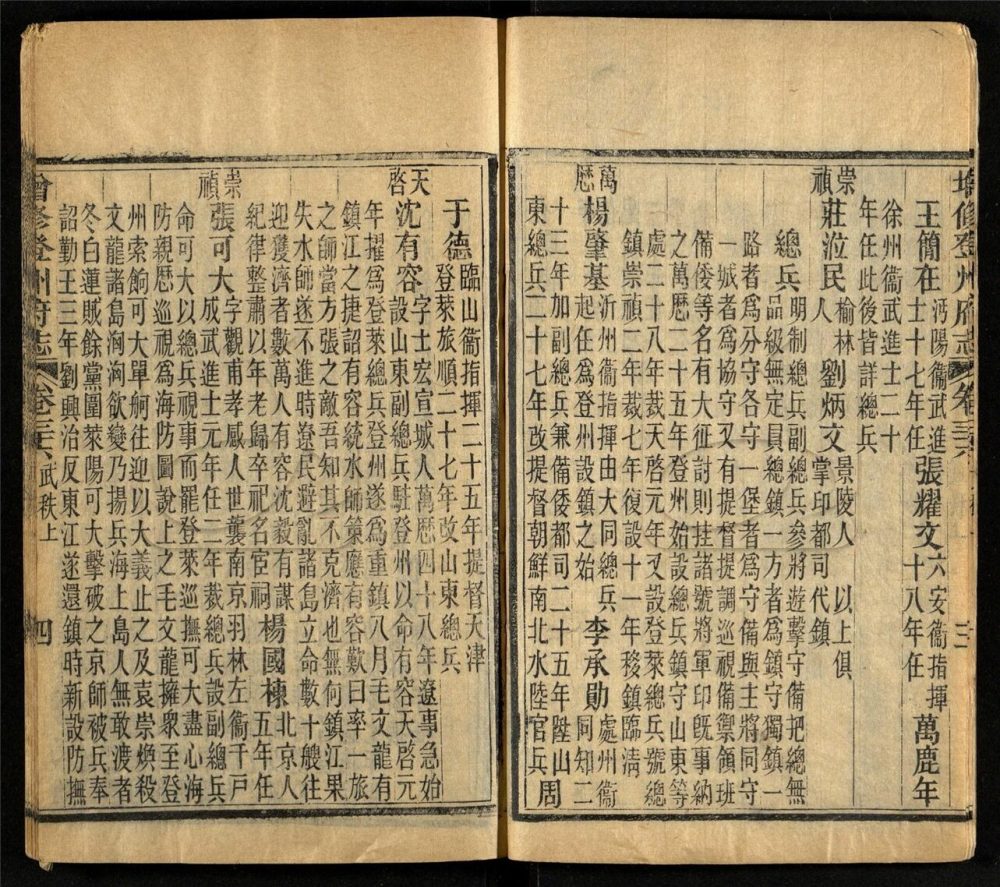 增修登州府志 卷三六 三
王簡在 沔陽衞武進
士十七年任 張耀文 六安衞指揮
十八年任 萬鹿年
徐州衞武進士二十
年任此後皆詳總兵
崇禎 莊涖民 榆林
人 劉炳文 景陵人 以上俱
掌印都司代鎮
總兵 明制總兵副總兵參將遊擊守備把總無
品級無定員總鎮一方者爲鎮守獨鎮一
路者爲分守各守一堡者爲守備與主將同守
一城者爲協守又有提督提調巡視備禦領班
備倭等名有大征討則挂諸號將軍印旣事納
之萬厯二十五年登州始設總兵鎮守山東等
處二十八年裁天啓元年又設登萊總兵號總
鎮崇禎二年裁七年復設十一年移鎮臨淸
萬厯 楊肇基 沂州衞指揮由大同總兵
起任爲登州設鎮之始 李承勛 處州衞
同知二
十三年加副總兵兼備倭都司二十五年陞山
東總兵二十七年改提督朝鮮南北水陸官兵 周
于德 臨山衞指揮二十五年提督天津
登萊旅順二十七年改山東總兵
天啓 沈有容 字士宏宣城人萬厯四十八年遼事急始
設山東副總兵駐登州以命有容天啓元
年擢爲登萊總兵登州遂爲重鎮八月毛文龍有
鎮江之捷詔有容統水師策應有容歎曰率一旅
之師當方張之敵吾知其不克濟也無何鎮江果
失水師遂不進時遼民避亂諸島立命數十艘往
迎獲濟者數萬人有容沈毅有謀
紀律整肅以年老歸卒祀名宦祠 楊國棟 北京人
五年任
崇禎 張可大 字觀甫孝感人世襲南京羽林左衞千戶
成武進士元年任二年裁總兵設副總兵
命可大以總兵視事而罷登萊巡撫可大盡心海
防親厯巡視爲海防圖說上之毛文龍擁衆至登
州索餉可大單舸往迎以大義止之及袁崇煥殺
文龍諸島洶洶欲變乃揚兵海上島人無敢渡者
冬白蓮賊餘黨圍萊陽可大擊破之京師破兵奉
詔勤王三年劉興治反東江遂還鎮時新設防撫
增修登州府志 卷三六 武秩上 四